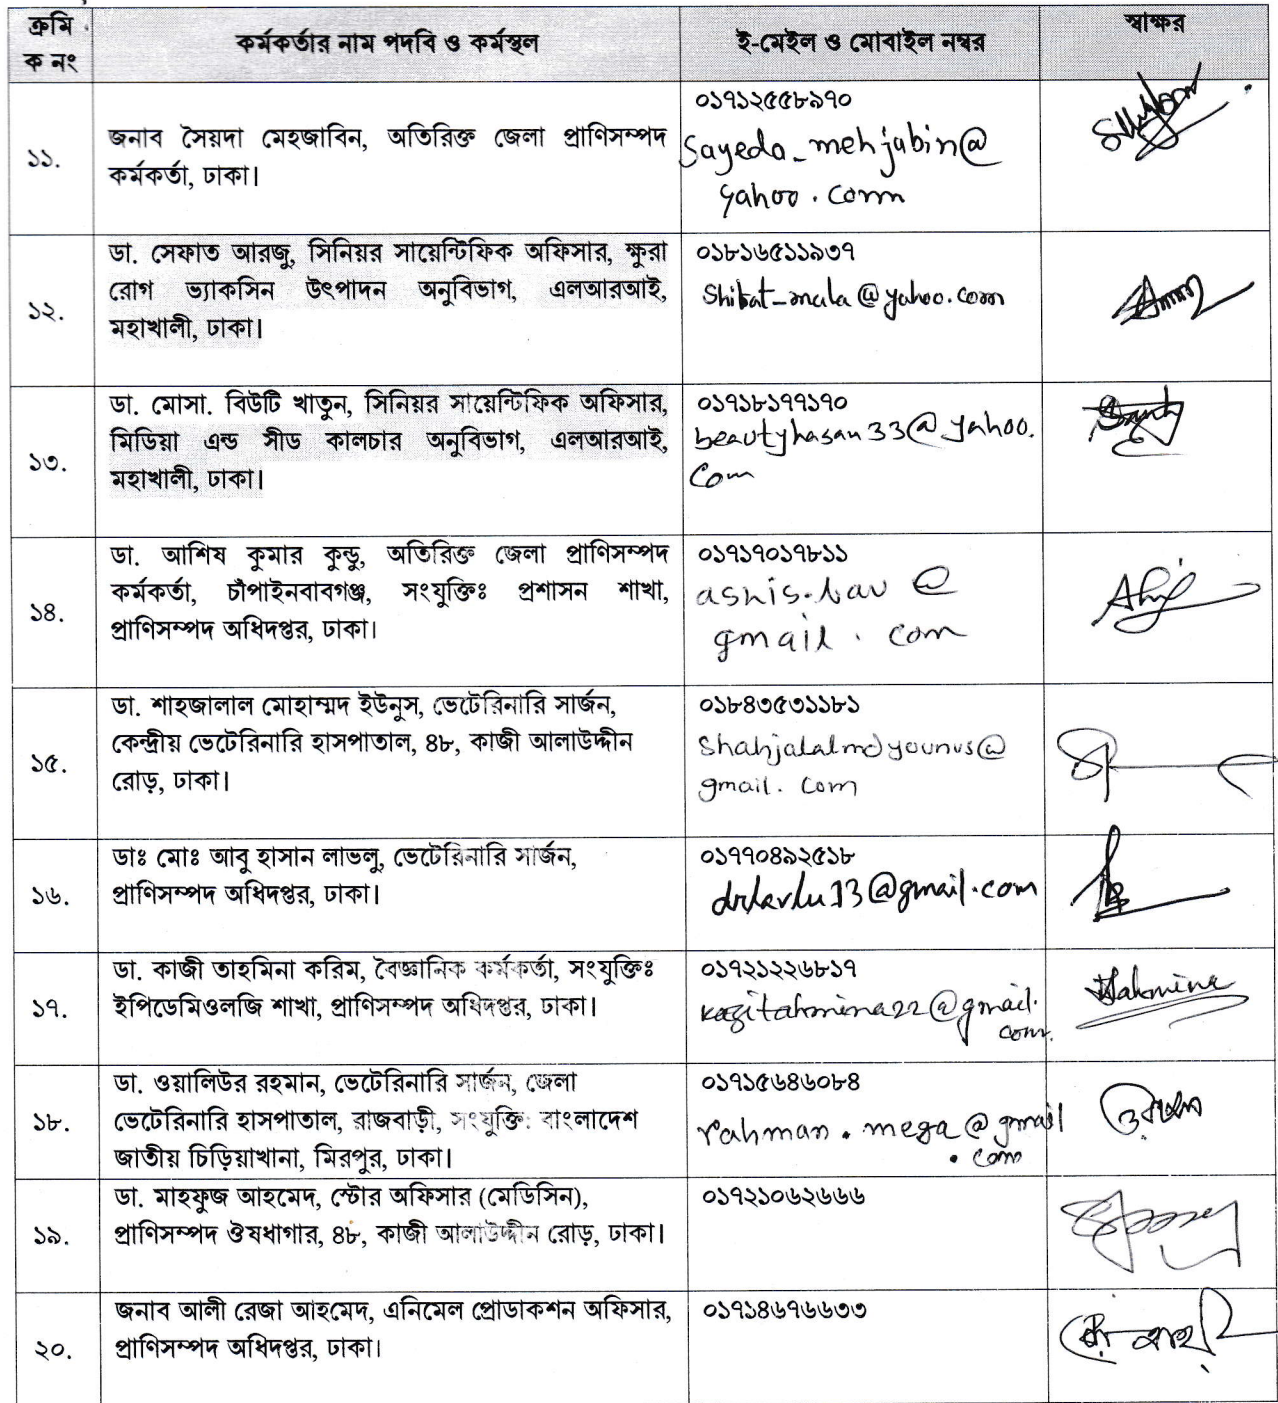 ক্রমি
ক নং
কর্মকর্তার নাম পদবি ও কর্মস্থল
ই-মেইল ও মোবাইল নম্বর
স্বাক্ষর
১১.
জনাব সৈয়দা মেহজাবিন, অতিরিক্ত জেলা প্রাণিসম্পদ
কর্মকর্তা, ঢাকা।
০১৭১২৫৫৮৯৭০
Sayeda_mehjabin@
yahoo.com
১২.
ডা. সেফাত আরজু, সিনিয়র সায়েন্টিফিক অফিসার, ক্ষুরা
রোগ ভ্যাকসিন উৎপাদন অনুবিভাগ, এলআরআই,
মহাখালী, ঢাকা।
০১৮১৬৫১১৯৩৭
@yahoo.com
১৩.
ডা. মোসা. বিউটি খাতুন, সিনিয়র সায়েন্টিফিক অফিসার,
মিডিয়া এন্ড সীড কালচার অনুবিভাগ, এলআরআই,
মহাখালী, ঢাকা।
০১৭১৮১৭৭১৭০
beautyhasan33@yahoo.
com
১৪.
ডা. আশিষ কুমার কুন্ডু, অতিরিক্ত জেলা প্রাণিসম্পদ
কর্মকর্তা, চাঁপাইনবাবগঞ্জ, সংযুক্তিঃ প্রশাসন শাখা,
প্রাণিসম্পদ অধিদপ্তর, ঢাকা।
০১৭১৭০১৭৮১১
@
gmail.com
১৫.
ডা. শাহজালাল মোহাম্মদ ইউনুস, ভেটেরিনারি সার্জন,
কেন্দ্রীয় ভেটেরিনারি হাসপাতাল, ৪৮, কাজী আলাউদ্দীন
রোড়, ঢাকা।
০১৮৪৩৫৩১১৮১
shahjalalmdyounus@
gmail.com
১৬.
ডাঃ মোঃ আবু হাসান লাভলু, ভেটেরিনারি সার্জন,
প্রাণিসম্পদ অধিদপ্তর, ঢাকা।
০১৭৭০৪৯২৫১৮
drlavlu13@gmail.com
১৭.
ডা. কাজী তাহমিনা করিম, বৈজ্ঞানিক কর্মকর্তা, সংযুক্তিঃ
ইপিডেমিওলজি শাখা, প্রাণিসম্পদ অধিদপ্তর, ঢাকা।
০১৭২১২২৬৮১৭
kazitahmina22@gmail.
com.
Tahmina
১৮.
ডা. ওয়ালিউর রহমান, ভেটেরিনারি সার্জন, জেলা
ভেটেরিনারি হাসপাতাল, রাজবাড়ী, সংযুক্তি: বাংলাদেশ
জাতীয় চিড়িয়াখানা, মিরপুর, ঢাকা।
০১৭১৫৬৪৬০৮৪
rahman.mega@gmail
.com
১৯.
ডা. মাহফুজ আহমেদ, স্টোর অফিসার (মেডিসিন),
প্রাণিসম্পদ ঔষধাগার, ৪৮, কাজী আলাউদ্দীন রোড়, ঢাকা।
০১৭২১০৬২৬৬৬
২০.
জনাব আলী রেজা আহমেদ, এনিমেল প্রোডাকশন অফিসার,
প্রাণিসম্পদ অধিদপ্তর, ঢাকা।
০১৭১৪৬৭৬৬৩৩